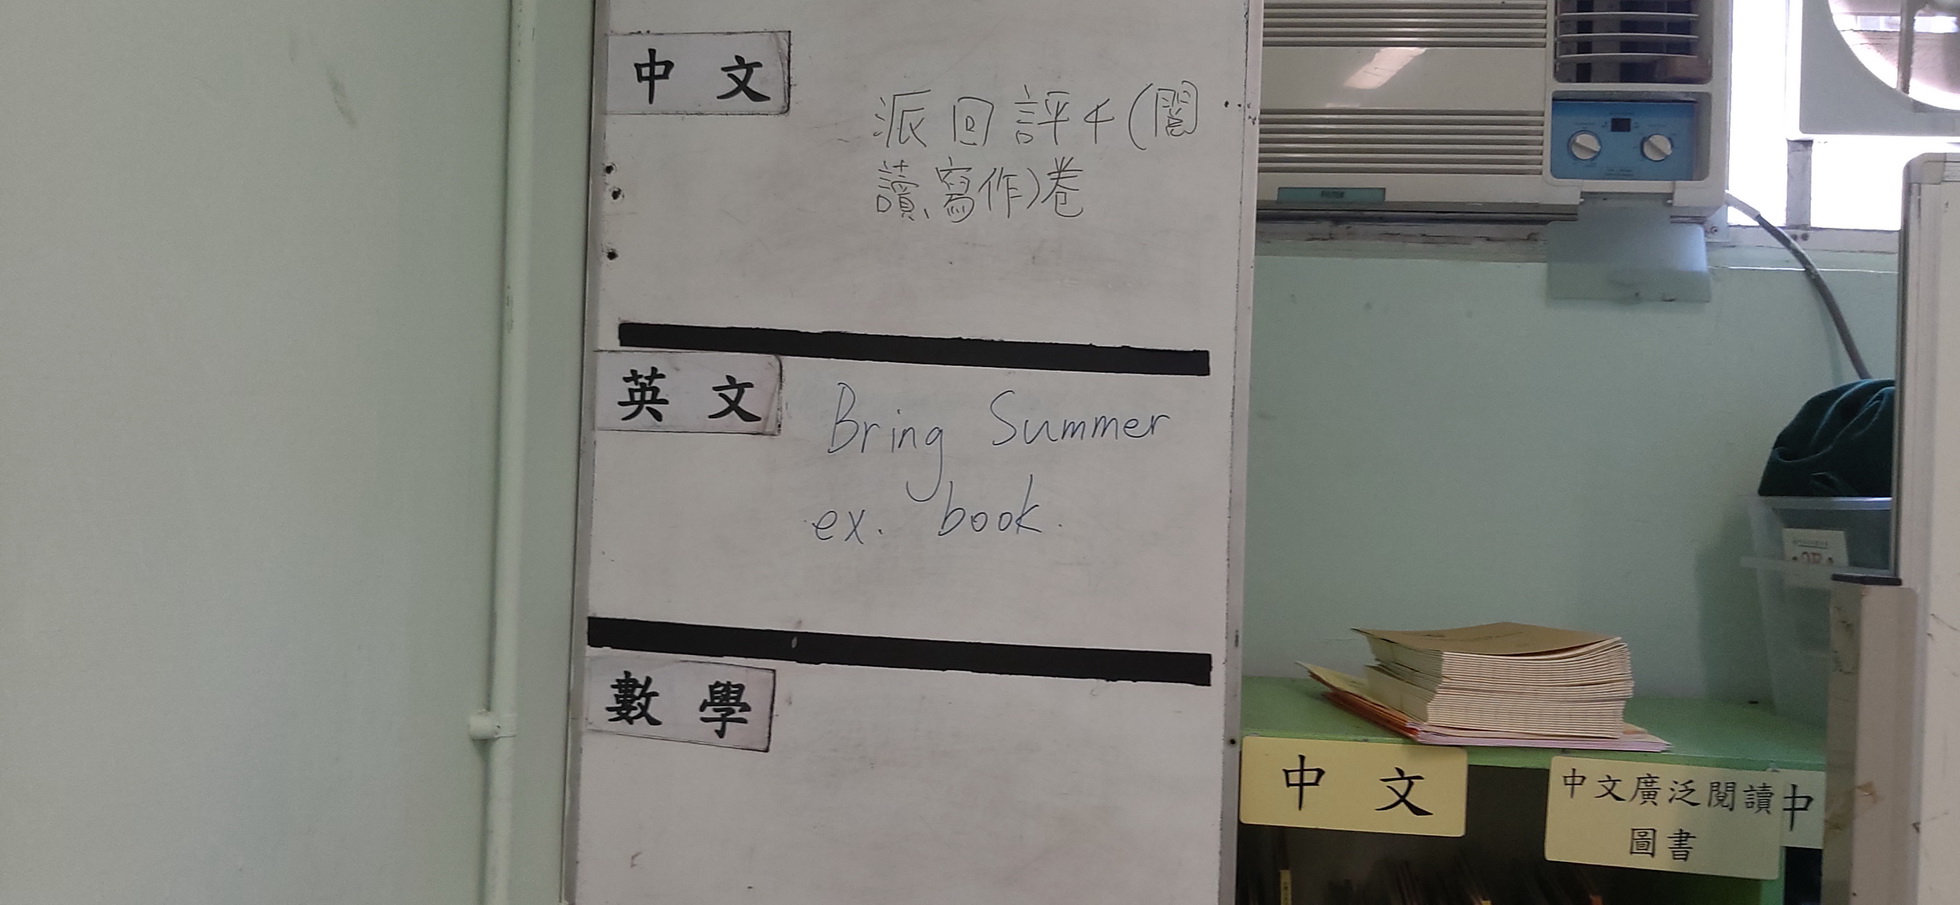 中文
派回評4(閱
讀、寫作)卷
英文
Bring Summer
ex. book.
數學
中文
中文廣泛閱讀
圖書
中